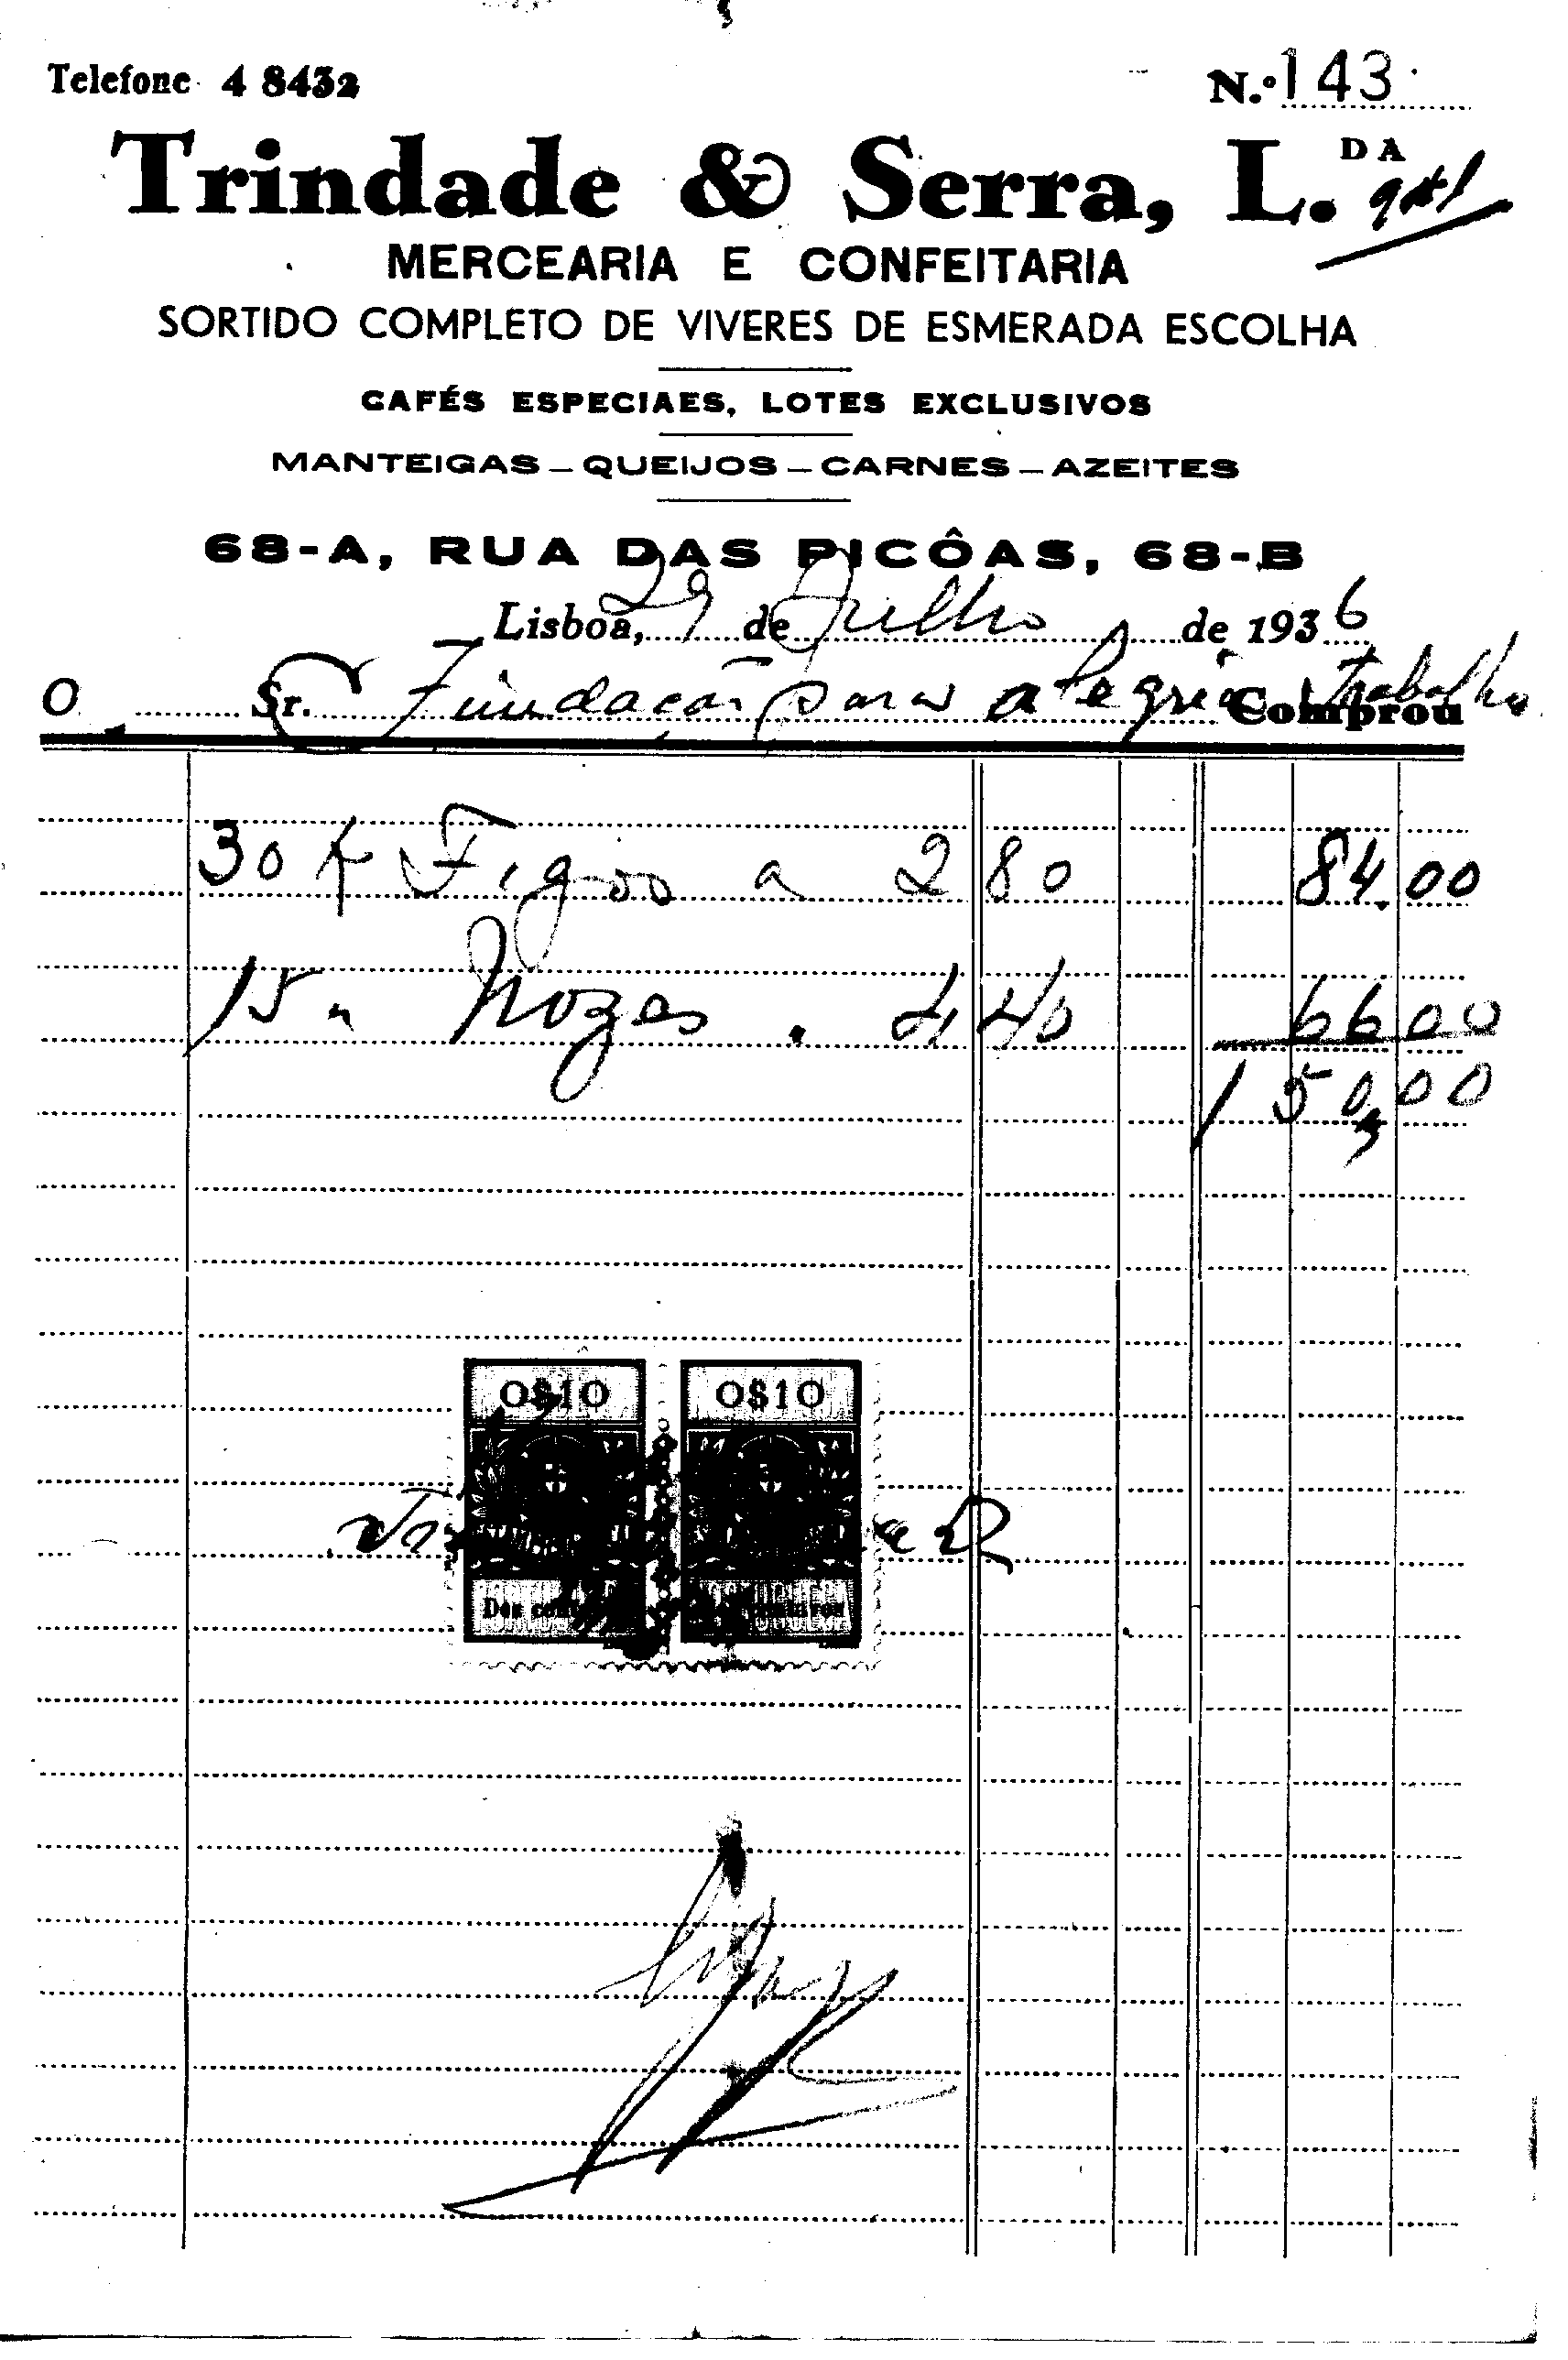 Telefone 4 8432
N.º 143
Trindade & Serra, L.DA
MERCEARIA E CONFEITARIA
SORTIDO COMPLETO DE VIVERES DE ESMERADA ESCOLHA
CAFÉS ESPECIAES, LOTES EXCLUSIVOS
MANTEIGAS – QUEIJOS – CARNES – AZEITES
68-A, RUA DAS PICÔAS, 68-B
Lisboa, 29 de Julho de 1936
O Sr. Fundação para alegria Trabalho Comprou
30 K Figos a 2 80 84.00
15 " Nozes . 4 40 66 00
150,00
0$10 0$10